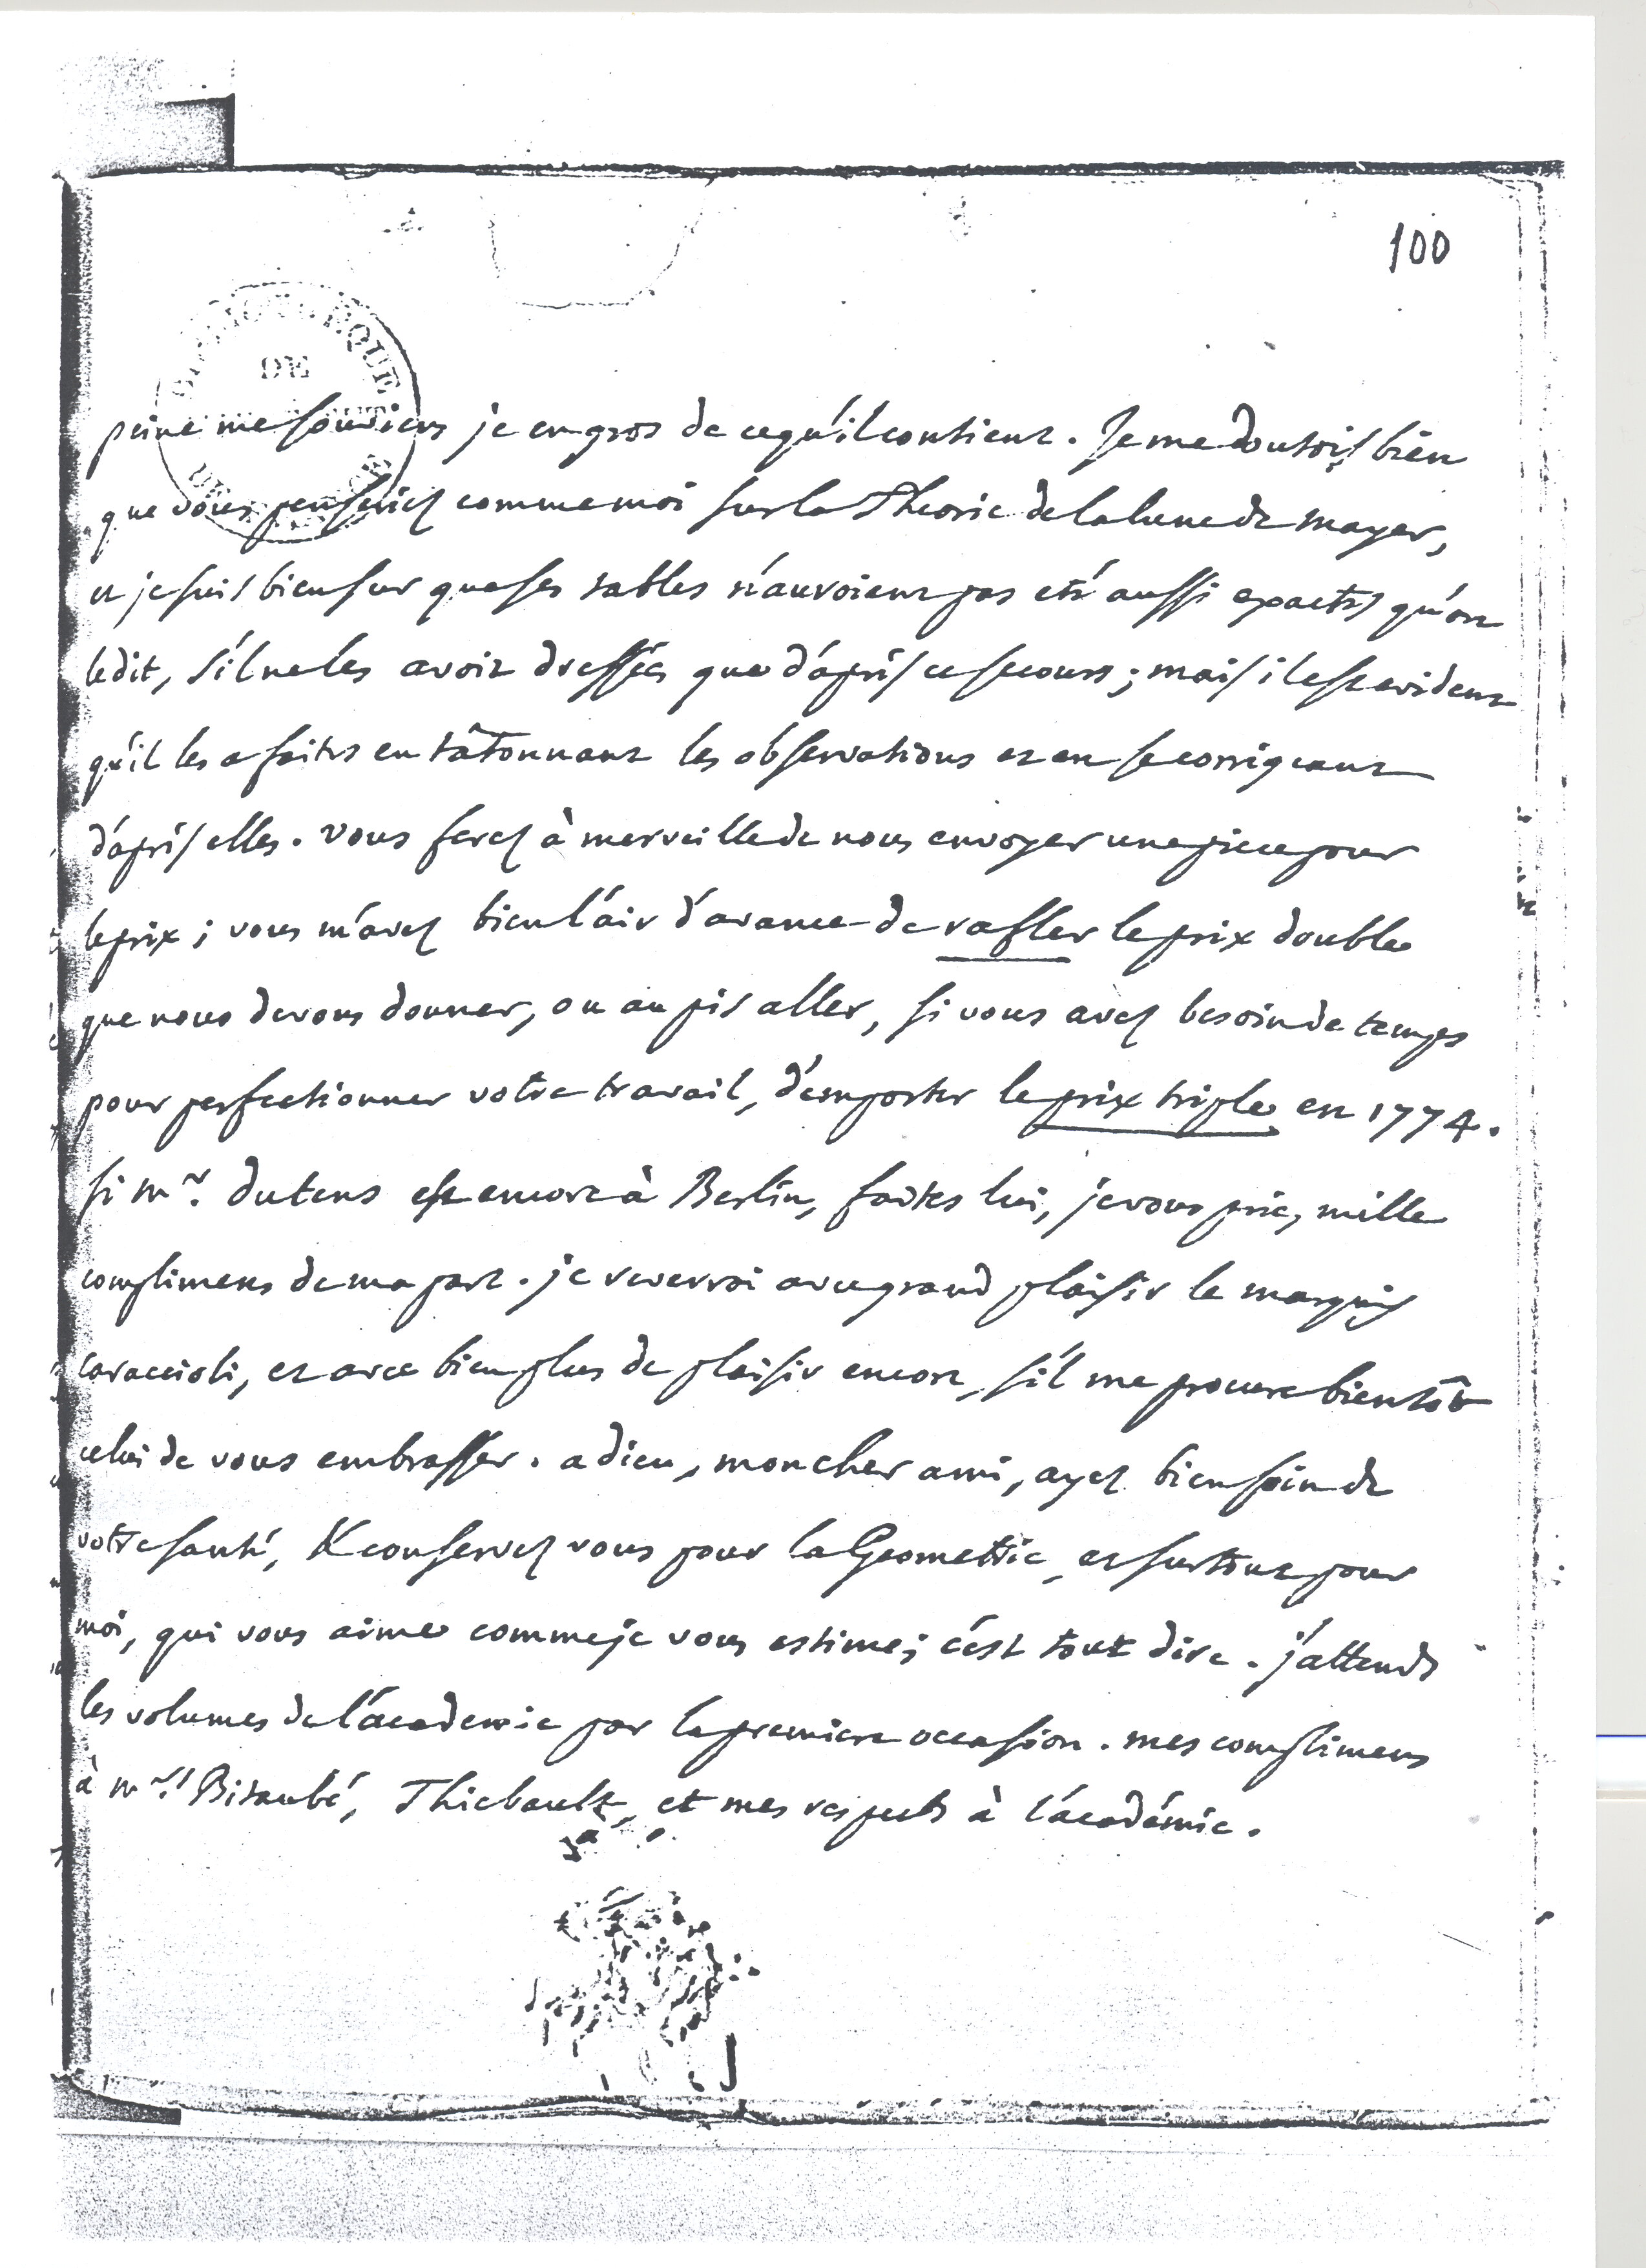 100
BIBLIOTHEQUE
DE
peine me souviens je en gros de ce qu'il contient. Je me doutois bien
que vous penseriez comme moi sur la Theorie de la lune de mayer,
et je suis bien sur que ses tables n'auroient pas eté aussi exactes qu'on
le dit, s'il ne les avoit dressées que d'après ce secours ; mais il est evident
qu'il les a faites en tâtonnant les observations et en se corrigeant
d'après elles. vous ferez à merveille de nous envoyer une piece pour
le prix ; vous m'avez bien l'air d'avance de rafler le prix double
que nous devons donner, ou au pis aller, si vous avez besoin de temps
pour perfectionner votre travail, d'emporter le prix triple en 1774.
si mr. dutens est encore à Berlin, faites lui, je vous prie, mille
complimens de ma part. je reverrai avec grand plaisir le marquis
caraccioli, et avec bien plus de plaisir encore, s'il me procure bientôt
celui de vous embrasser. adieu, mon cher ami, ayez bien soin de
votre santé, & conservez vous pour la Geometrie, et surtout pour
moi, qui vous aime comme je vous estime ; c'est tout dire. j'attends
les volumes de l'academie par la premiere occasion. mes complimens
à mrs. Bitaubé, Thiebault, et mes respects à l'académie.